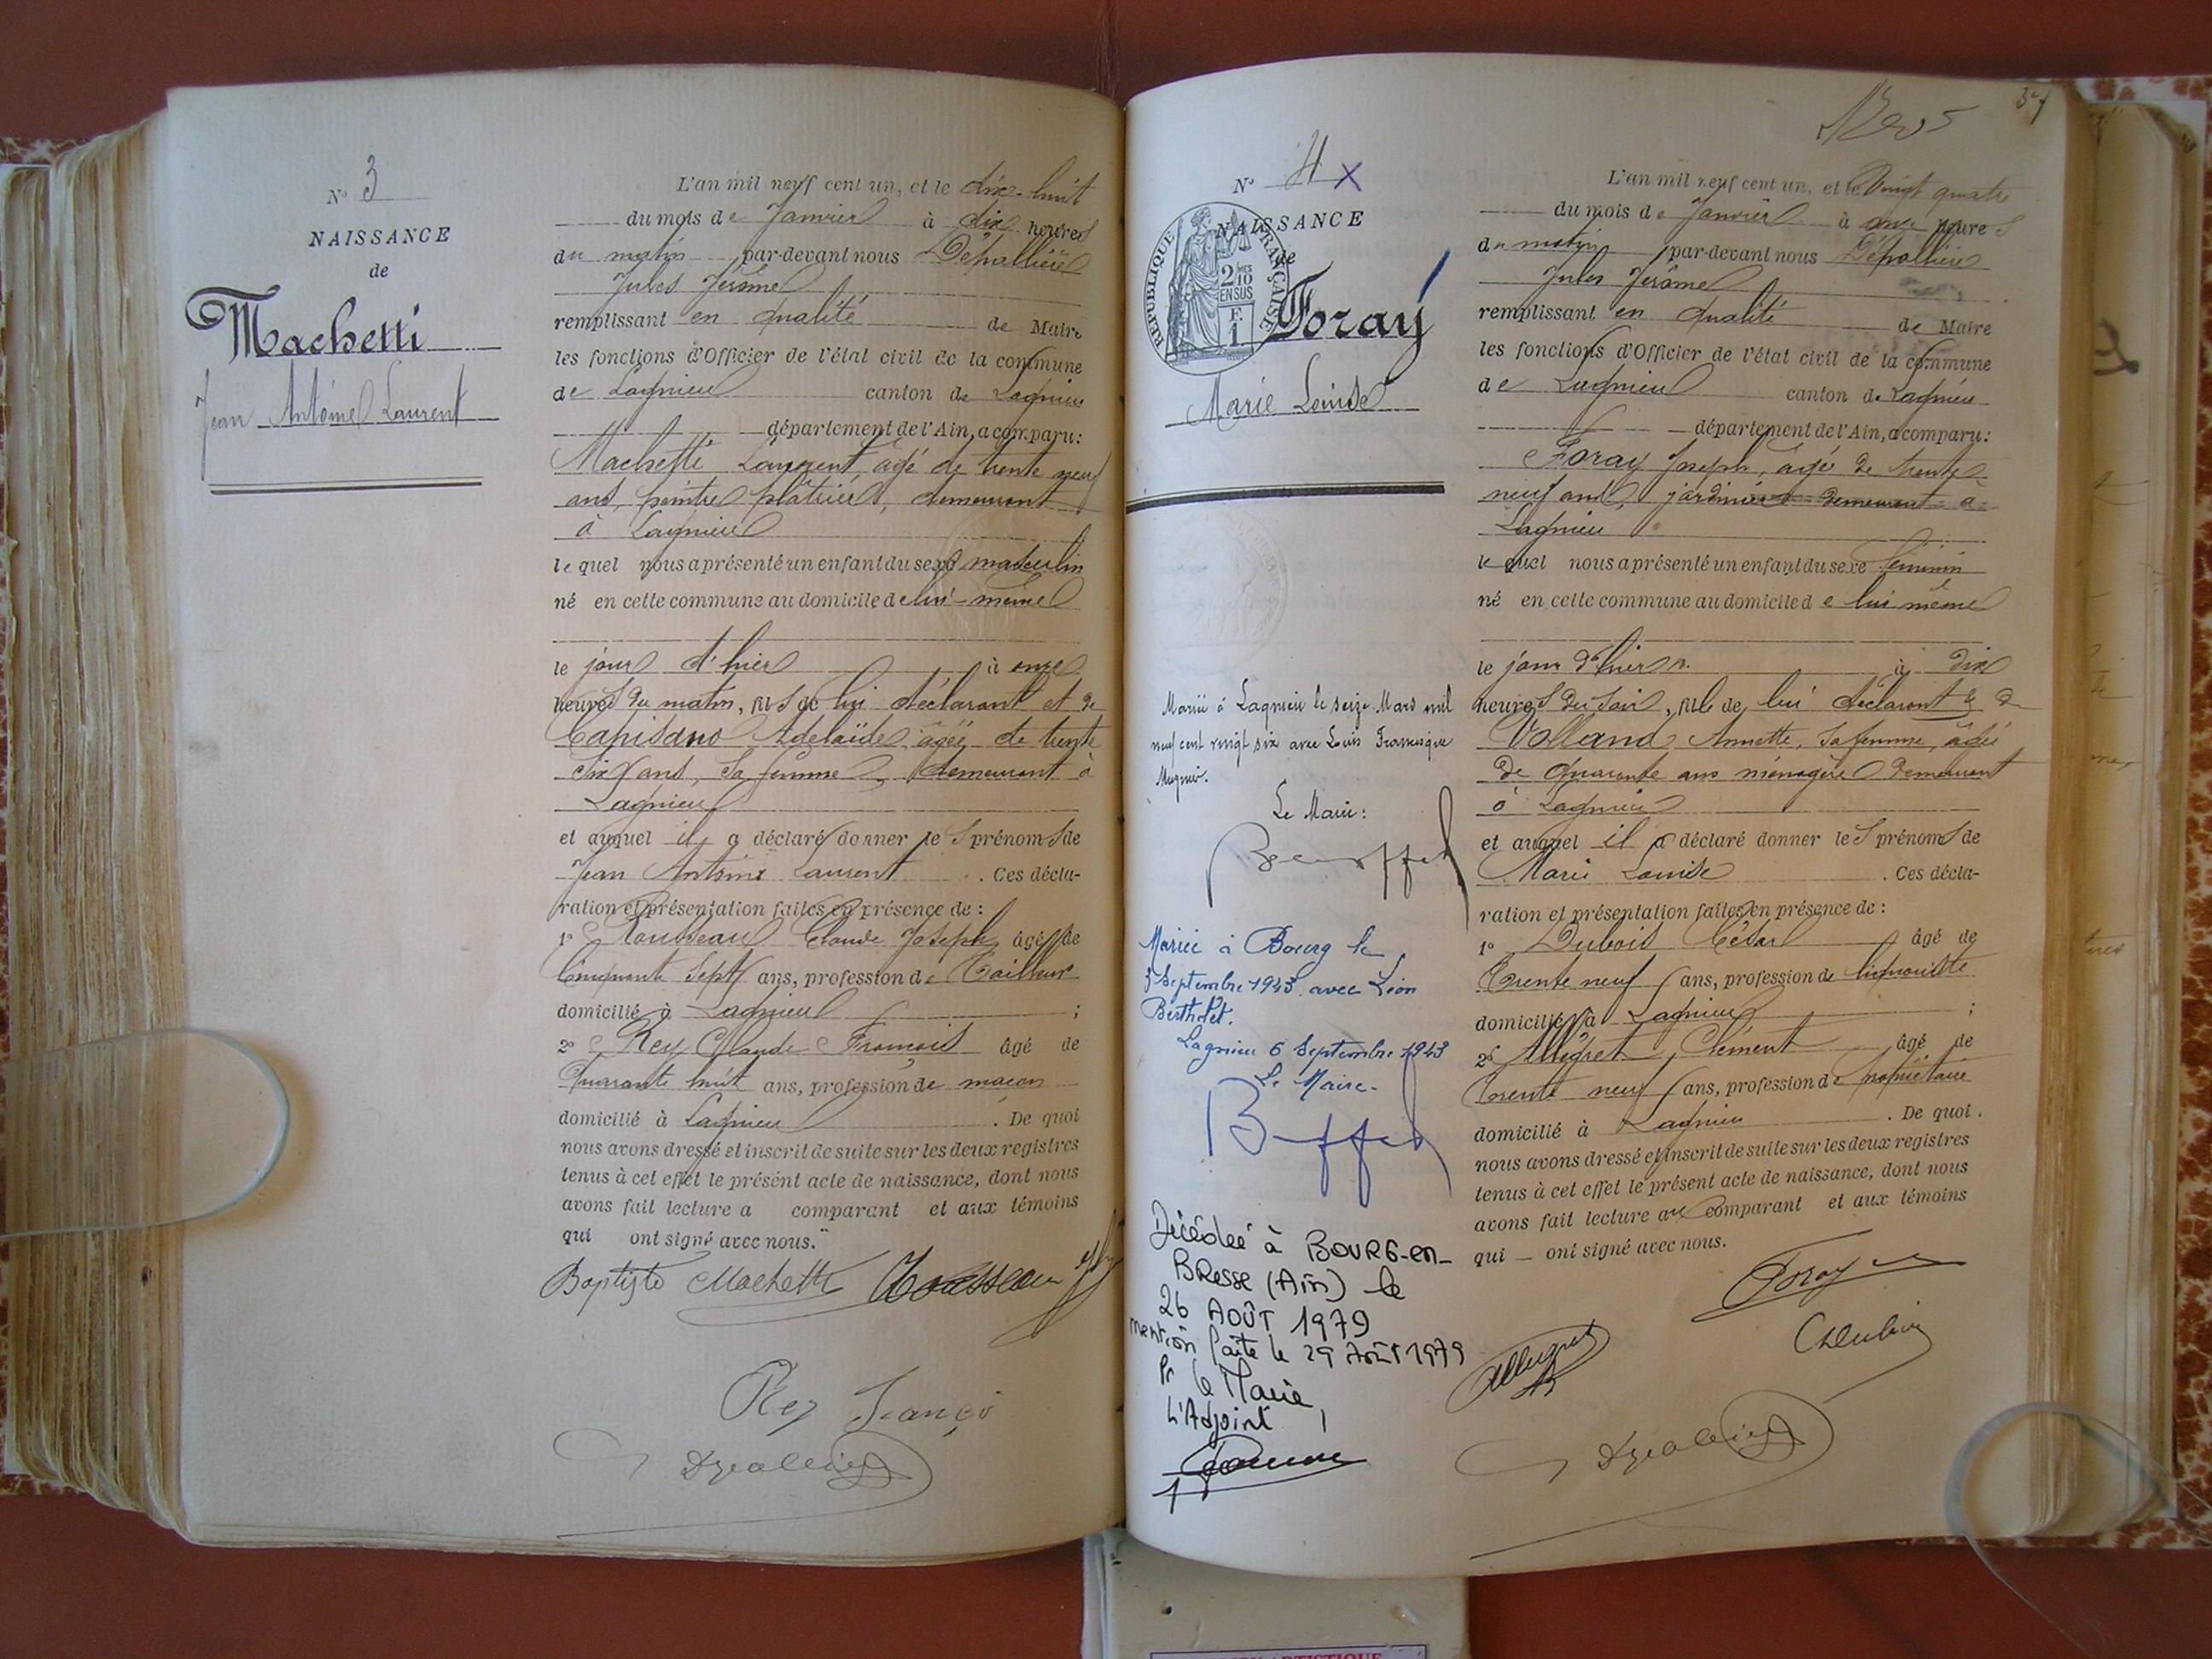 N° 3
NAISSANCE
de
Machetti
Jean Antoine Laurent
L'an mil neuf cent un, et le dix-huit
du mois de Janvier à dix heures
du matin par-devant nous Dépallière
Jules Jérôme
remplissant en qualité de Maire
les fonctions d'Officier de l'état civil de la commune
de Lagnieu canton de Lagnieu
département de l'Ain, a comparu:
Machetti Laurent, âgé de trente neuf
ans, peintre plâtrier, demeurant
à Lagnieu
lequel nous a présenté un enfant du sexe masculin
né en cette commune au domicile de lui-même
le jour d'hier à onze
heures du matin, fils de lui déclarant et de
Capisano Adelaïde âgée de trente
six ans, sa femme, demeurant à
Lagnieu
et auquel il a déclaré donner les prénoms de
Jean Antoine Laurent. Ces décla-
ration et présentation faites en présence de :
1° Rousseau Claude Joseph âgé de
Cinquante sept ans, profession de Tailleur
domicilié à Lagnieu ;
2° Rey Claude François âgé de
Quarante huit ans, profession de maçon
domicilié à Lagnieu. De quoi
nous avons dressé et inscrit de suite sur les deux registres
tenus à cet effet le présent acte de naissance, dont nous
avons fait lecture a comparant et aux témoins
qui ont signé avec nous.
Baptiste Machetti Rousseau
Rey Françoi
N° 4 X
NAISSANCE
de
REPUBLIQUE FRANÇAISE
2/10 EN SUS
F. 1
Foray
Marie Louise
37
L'an mil neuf cent un, et le Vingt quatre
du mois de Janvier à onze heures
du matin par-devant nous Dépallière
Jules Jérôme
remplissant en qualité de Maire
les fonctions d'Officier de l'état civil de la commune
de Lagnieu canton de Lagnieu
département de l'Ain, a comparu:
Foray Joseph, âgé de trente
neuf ans, jardinier demeurant à
Lagnieu
lequel nous a présenté un enfant du sexe féminin
né en cette commune au domicile de lui même
le jour d'hier à dix
heures du soir, fille de lui déclarant & de
Volland Annette, sa femme, âgée
de quarante ans ménagère demeurant
à Lagnieu
et auquel il a déclaré donner les prénoms de
Marie Louise. Ces décla-
ration et présentation faites en présence de :
1° Dubois César âgé de
Trente neuf ans, profession de limoniste
domicilié à Lagnieu ;
2° Allégret Clément âgé de
Trente neuf ans, profession de propriétaire
domicilié à Lagnieu. De quoi
nous avons dressé et inscrit de suite sur les deux registres
tenus à cet effet le présent acte de naissance, dont nous
avons fait lecture au comparant et aux témoins
qui — ont signé avec nous.
Foray
Mariée à Lagnieu le seize Mars mil
neuf cent vingt six avec Louis Francisque
Mugnier.
Le Maire :
Mariée à Bourg le
3 Septembre 1943 avec Léon
Berthet.
Lagnieu 6 Septembre 1943
Le Maire.
Décédée à BOURG-en-
BRESSE (Ain) le
26 AOÛT 1979
mention faite le 29 Août 1979
Pr le Maire,
L'Adjoint